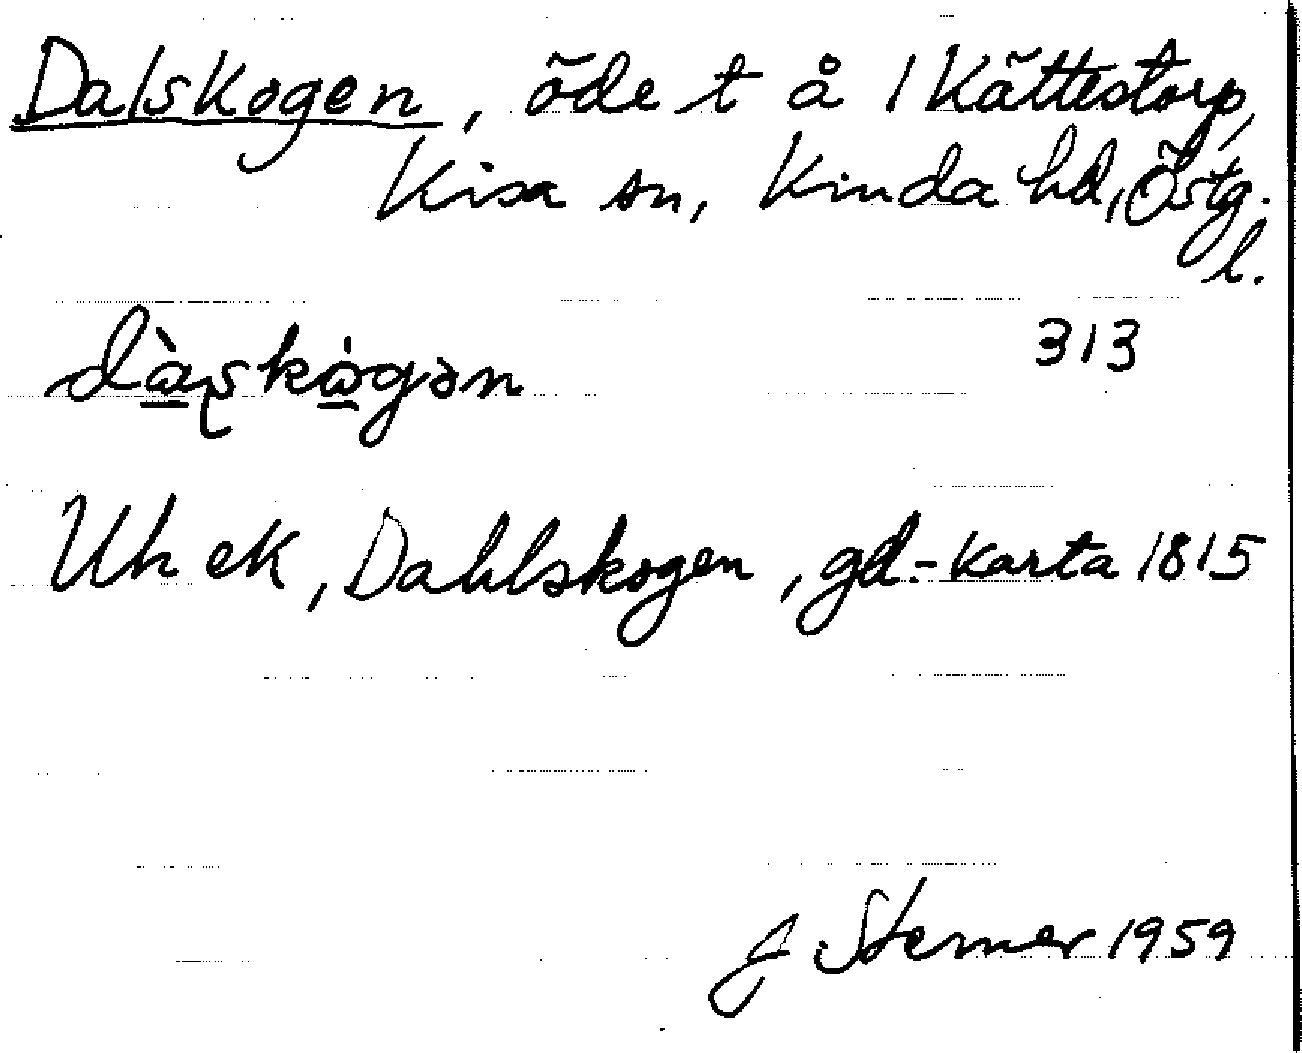 Dalskogen, öde t å 1 Kättestorp,
Kisa sn, Kinda hd, Östg.
l.
313
Uh ek, Dahlskogen, gd.-karta 1815
J. Sterner 1959